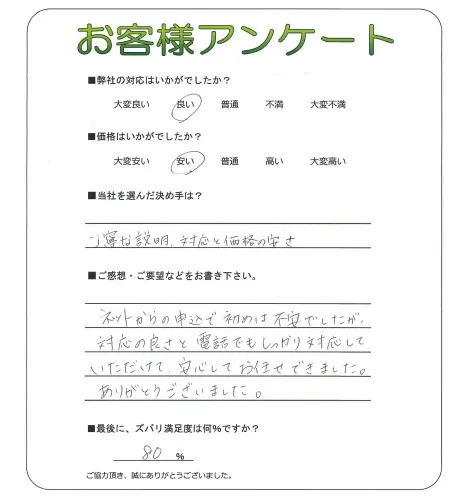 お客様アンケート
■弊社の対応はいかがでしたか？
大変良い 良い 普通 不満 大変不満
■価格はいかがでしたか？
大変安い 安い 普通 高い 大変高い
■当社を選んだ決め手は？
丁寧な説明、対応と価格の安さ
■ご感想・ご要望などをお書き下さい。
ネットからの申込で初めは不安でしたが、
対応の良さと電話でもしっかり対応して
いただけて、安心してお任せできました。
ありがとうございました。
■最後に、ズバリ満足度は何％ですか？
80 ％
ご協力頂き、誠にありがとうございました。